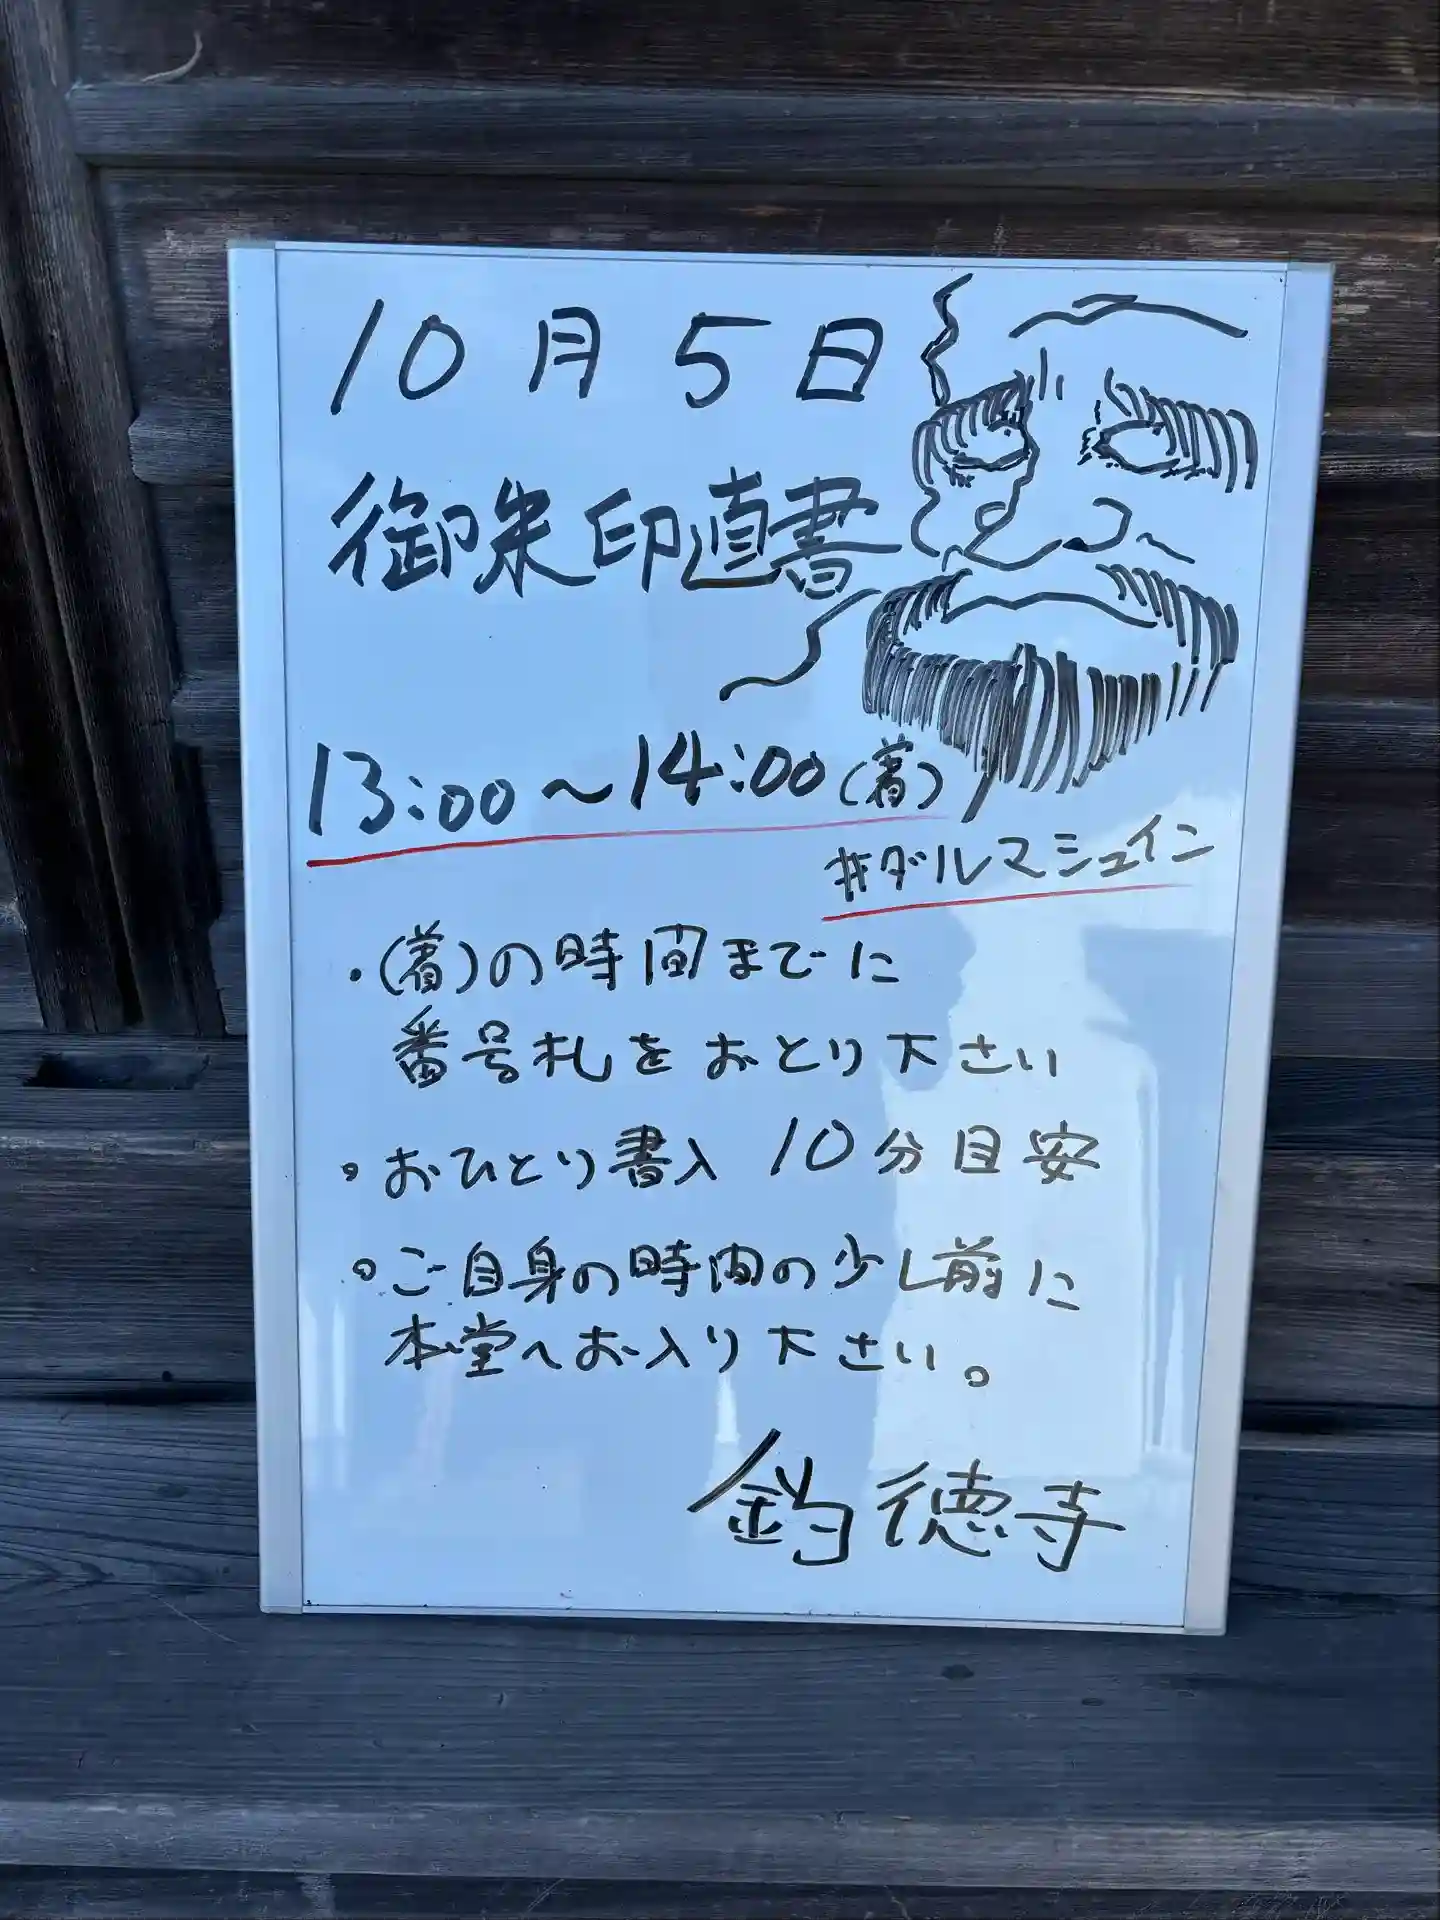 10月5日
御朱印直書
13:00～14:00(着)
#ダルマシュイン
・(着)の時間までに
番号札をおとり下さい
・おひとり書入 10分目安
・ご自身の時間の少し前に
本堂へお入り下さい。
釣徳寺